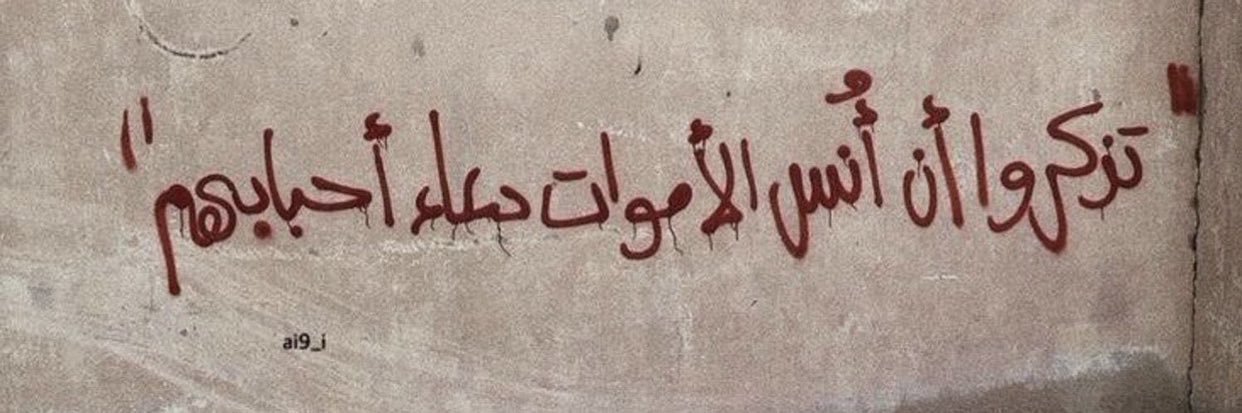 "تذكروا أن أُنس الأموات دعاء أحبابهم"
ai9_i